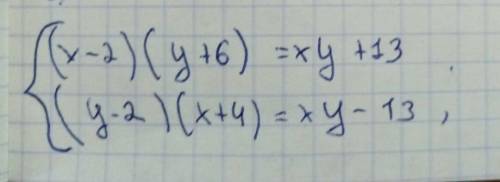 (x-2)(y+6) = xy +13
(y-2)(x+4) = xy - 13,